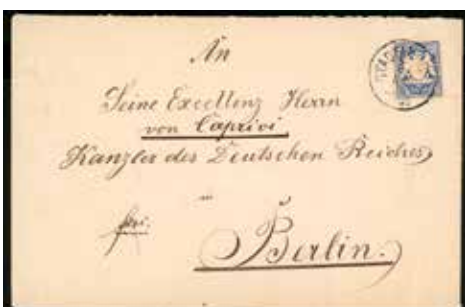 An
Seine Excellenz Herrn
von Caprivi
Kanzler des Deutschen Reiches
in
Berlin.
frei.